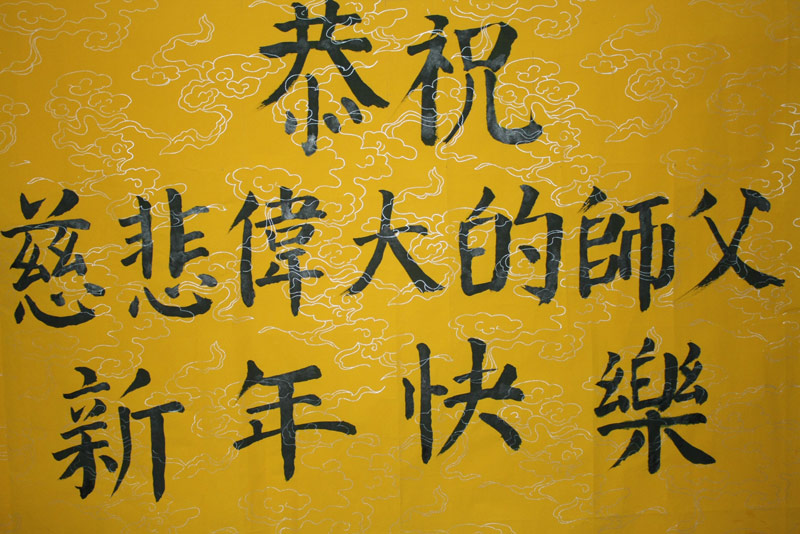 恭祝
慈悲偉大的師父
新年快樂